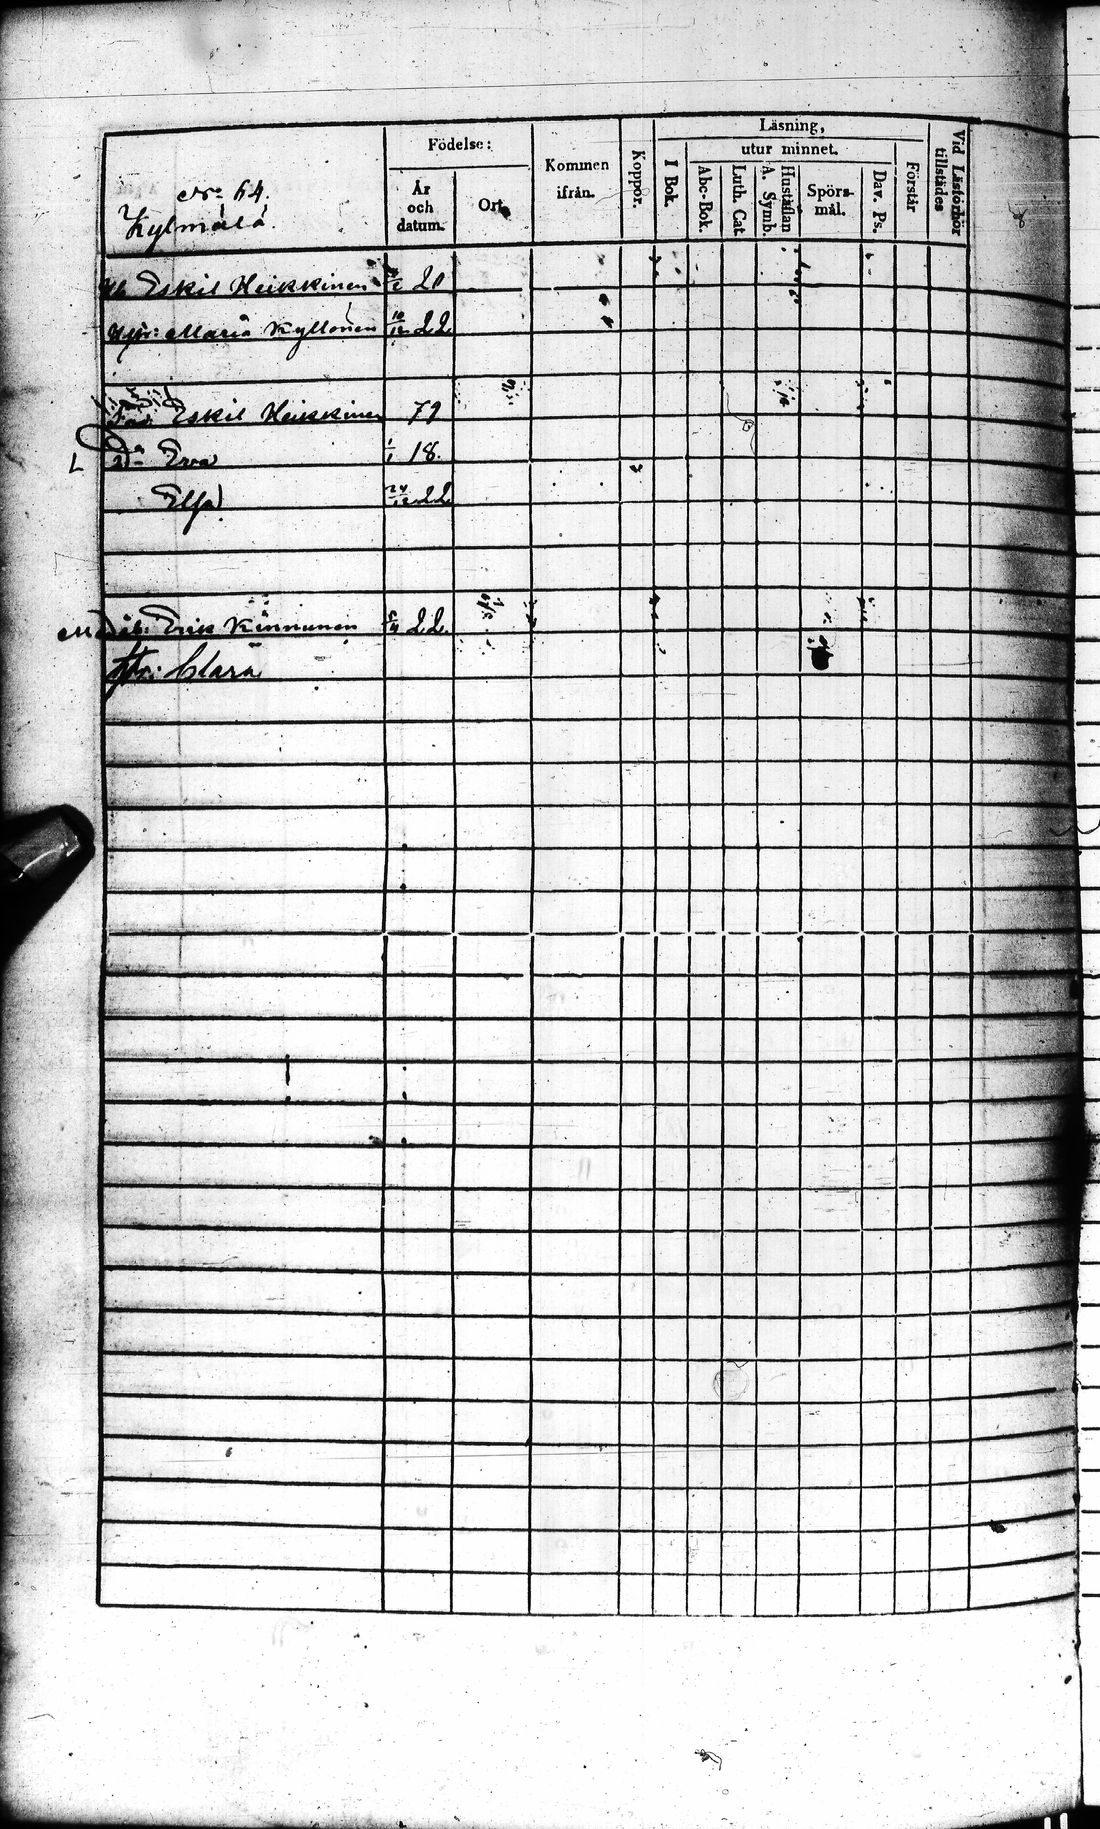 No 64.
Kylmälä
Födelse:
År och datum.
Ort.
Kommen ifrån.
Koppor.
Läsning,
I Bok.
utur minnet.
Abc-Bok.
Luth. Cat.
Hustaflan A. Symb.
Spörsmål.
Dav. Ps.
Förstår
Vid Läsförhör tillstädes
Eskil Heikkinen 20
Hstr: Maria Kyllönen 10/12 22
Eskil Heikkinen 79
L Dr Eva 1/1 18.
Elsa 24/12 22
Erik Kinnunen 5/4 22
Hstr: Clara